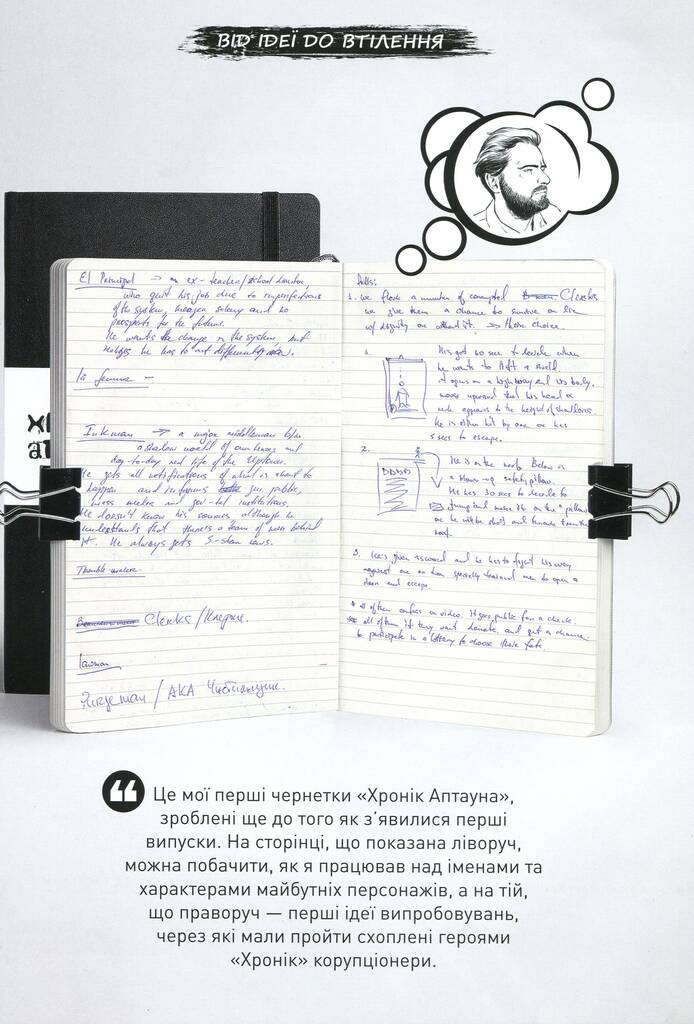 ВІД ІДЕЇ ДО ВТІЛЕННЯ
El Principal → ex-teacher/school
who quit his job due to imperfections
of the system, meager salary and no
prospects for the future.
He wants to change the system but
realizes he has to act differently now.
La femme –
Inkman → a major middleman b/w
a shadow world of
day-to-day real life of the Uptown.
He gets all notifications of what is about to
happen and informs public,
media and institutions.
He doesn't know his sources although he
understands that there's a team of men behind
it. He always gets 5-star
Trouble
Clerks/Клерки.
Lawman
/AKA Чистильщик.
1. we a number of corrupted Clerks
we give them a chance to survive or die
w/ dignity or without it. → their choice.
1.
He's got 30 sec to decide when
he wants to lift a
it opens on a highway and his body
moves upward that his head or
neck appears to the height of
He is either hit by one or has
5 sec to escape.
2.
He is on the roof. Below is
a safety pillow.
He has 30 sec to decide to
jump and make it on the pillow
or he will be shot and from the
roof.
3. He's given a sword and he has to fight his way
against one or two specially trained men to open a
door and escape.
all of them on video. It goes public for a
all of them if they want donate and get a chance
to participate in a lottery to choose their fate.
ХР
ап
“ Це мої перші чернетки «Хронік Аптауна»,
зроблені ще до того як з’явилися перші
випуски. На сторінці, що показана ліворуч,
можна побачити, як я працював над іменами та
характерами майбутніх персонажів, а на тій,
що праворуч — перші ідеї випробовувань,
через які мали пройти схоплені героями
«Хронік» корупціонери.